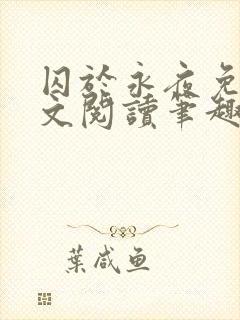 囚於永夜免
文閱讀筆趣
葉咸魚